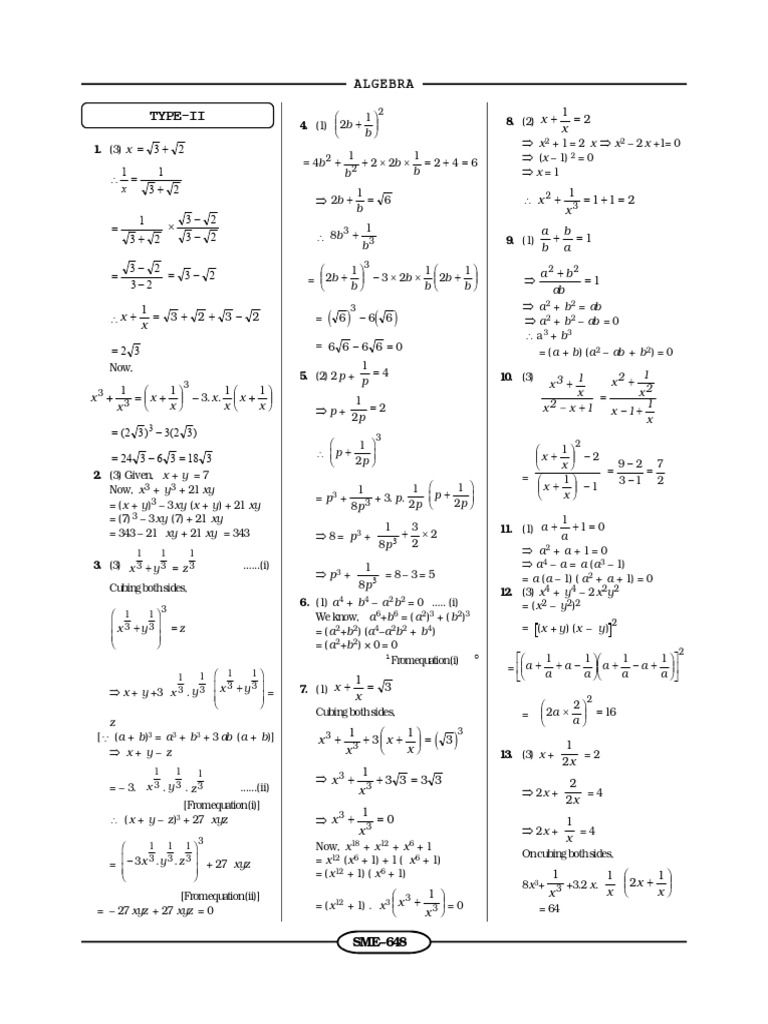 ALGEBRA
TYPE-II
1. (3) x = √3 + √2
∴ 1/x = 1/(√3 + √2)
= 1/(√3 + √2) × (√3 − √2)/(√3 − √2)
= (√3 − √2)/(3 − 2) = √3 − √2
∴ x + 1/x = √3 + √2 + √3 − √2
= 2√3
Now,
x³ + 1/x³ = (x + 1/x)³ − 3. x. 1/x (x + 1/x)
= (2√3)³ − 3(2√3)
= 24√3 − 6√3 = 18√3
2. (3) Given, x + y = 7
Now, x³ + y³ + 21 xy
= (x + y)³ − 3xy (x + y) + 21 xy
= (7)³ − 3xy (7) + 21 xy
= 343 − 21 xy + 21 xy = 343
3. (3) x^(1/3) + y^(1/3) = z^(1/3) ......(i)
Cubing both sides,
(x^(1/3) + y^(1/3))³ = z
⇒ x + y +3 x^(1/3) . y^(1/3) (x^(1/3) + y^(1/3)) =
z
[∵ (a + b)³ = a³ + b³ + 3ab (a + b)]
⇒ x + y − z
= − 3. x^(1/3) . y^(1/3) . z^(1/3) ......(ii)
[From equation (i)]
∴ (x + y − z)³ + 27 xyz
= (−3x^(1/3) . y^(1/3) . z^(1/3))³ + 27 xyz
[From equation (ii)]
= − 27 xyz + 27 xyz = 0
4. (1) (2b + 1/b)²
= 4b² + 1/b² + 2 × 2b × 1/b = 2 + 4 = 6
⇒ 2b + 1/b = √6
∴ 8b³ + 1/b³
= (2b + 1/b)³ − 3 × 2b × 1/b (2b + 1/b)
= (√6)³ − 6(√6)
= 6√6 − 6√6 = 0
5. (2) 2p + 1/p = 4
⇒ p + 1/2p = 2
∴ (p + 1/2p)³
= p³ + 1/8p³ + 3. p. 1/2p (p + 1/2p)
⇒ 8 = p³ + 1/8p³ + 3/2 × 2
⇒ p³ + 1/8p³ = 8 − 3 = 5
6. (1) a⁴ + b⁴ − a²b² = 0 ..... (i)
We know, a⁶+b⁶ = (a²)³ + (b²)³
= (a²+b²) (a⁴−a²b² + b⁴)
= (a²+b²) × 0 = 0
From equation (i)
7. (1) x + 1/x = √3
Cubing both sides,
x³ + 1/x³ + 3(x + 1/x) = (√3)³
⇒ x³ + 1/x³ + 3√3 = 3√3
⇒ x³ + 1/x³ = 0
Now, x¹⁸ + x¹² + x⁶ + 1
= x¹² (x⁶ + 1) + 1 ( x⁶ + 1)
= (x¹² + 1) ( x⁶ + 1)
= (x¹² + 1) . x³ (x³ + 1/x³) = 0
8. (2) x + 1/x = 2
⇒ x² + 1 = 2 x ⇒ x² − 2 x +1= 0
⇒ (x − 1) ² = 0
⇒ x = 1
∴ x² + 1/x³ = 1 + 1 = 2
9. (1) a/b + b/a = 1
⇒ (a² + b²)/ab = 1
⇒ a² + b² = ab
⇒ a² + b² − ab = 0
∴ a³ + b³
= (a + b) (a² − ab + b²) = 0
10. (3) (x³ + 1/x)/(x² − x + 1) = (x² + 1/x²)/(x − 1 + 1/x)
= ((x + 1/x)² − 2)/((x + 1/x) − 1) = (9 − 2)/(3 − 1) = 7/2
11. (1) a + 1/a + 1 = 0
⇒ a² + a + 1 = 0
⇒ a⁴ − a = a (a³ − 1)
= a (a − 1) ( a² + a + 1) = 0
12. (3) x⁴ + y⁴ − 2x²y²
= (x² − y²)²
= [(x + y) (x − y)]²
= [(a + 1/a + a − 1/a)(a + 1/a − a + 1/a)]²
= (2a × 2/a)² = 16
13. (3) x + 1/2x = 2
⇒ 2x + 2/2x = 4
⇒ 2x + 1/x = 4
On cubing both sides,
8x³+ 1/x³ +3.2 x. 1/x (2x + 1/x)
= 64
SME–648